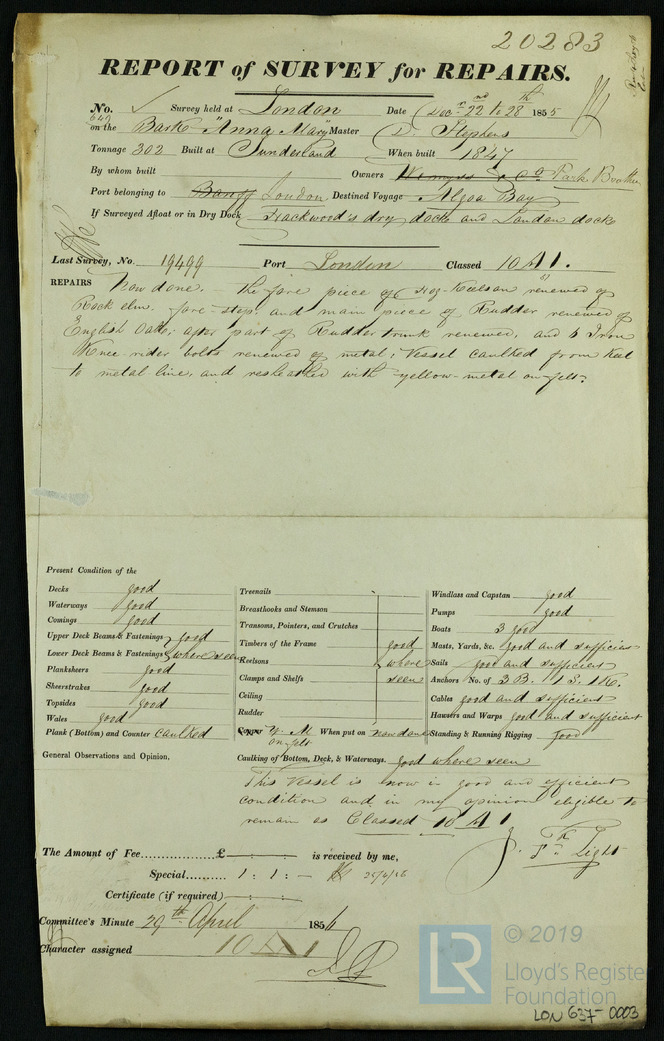 20283
REPORT of SURVEY for REPAIRS.
No. 649 Survey held at London Date Decr 22nd to 28th 1855
on the Bark "Anna Mary" Master D. Stephens
Tonnage 302 Built at Sunderland When built 1847
By whom built Owners Wemyss & Co Park Brothers
Port belonging to Banff London Destined Voyage Algoa Bay
If Surveyed Afloat or in Dry Dock Trackwood's dry dock and London docks
Last Survey, No. 19499 Port London Classed 10 A 1.
REPAIRS Now done. - The fore piece of Keelson renewed of
Rock elm, fore-step and main piece of Rudder renewed of
English Oak; after part of Rudder trunk renewed, and 5 Iron
Knee rider bolts renewed of metal; Vessel caulked from keel
to metal line, and resheathed with yellow-metal on felt.
Present Condition of the
Decks good
Waterways good
Comings good
Upper Deck Beams & Fastenings good
Lower Deck Beams & Fastenings where seen
Planksheers good
Sheerstrakes good
Topsides good
Wales good
Plank (Bottom) and Counter caulked
Treenails
Breasthooks and Stemson
Transoms, Pointers, and Crutches
Timbers of the Frame good
Keelsons where
Clamps and Shelfs seen
Ceiling
Rudder
Copper Y. M. on felt When put on now done
Caulking of Bottom, Deck, & Waterways. good where seen
Windlass and Capstan good
Pumps good
Boats 3 good
Masts, Yards, &c. good and sufficient
Sails good and sufficient
Anchors No. of 3 B. 1 S. 1 K.
Cables good and sufficient
Hawsers and Warps good and sufficient
Standing & Running Rigging good
General Observations and Opinion,
This Vessel is now in good and efficient
condition and in my opinion eligible to
remain as Classed 10 A 1
The Amount of Fee £ - : - : is received by me,
Special 1 : 1 : -
Light
Certificate (if required) - : - :
Committee's Minute 29th April 1856
Character assigned 10 A 1
© 2019
LR
Lloyd's Register
Foundation
LON 637-0003